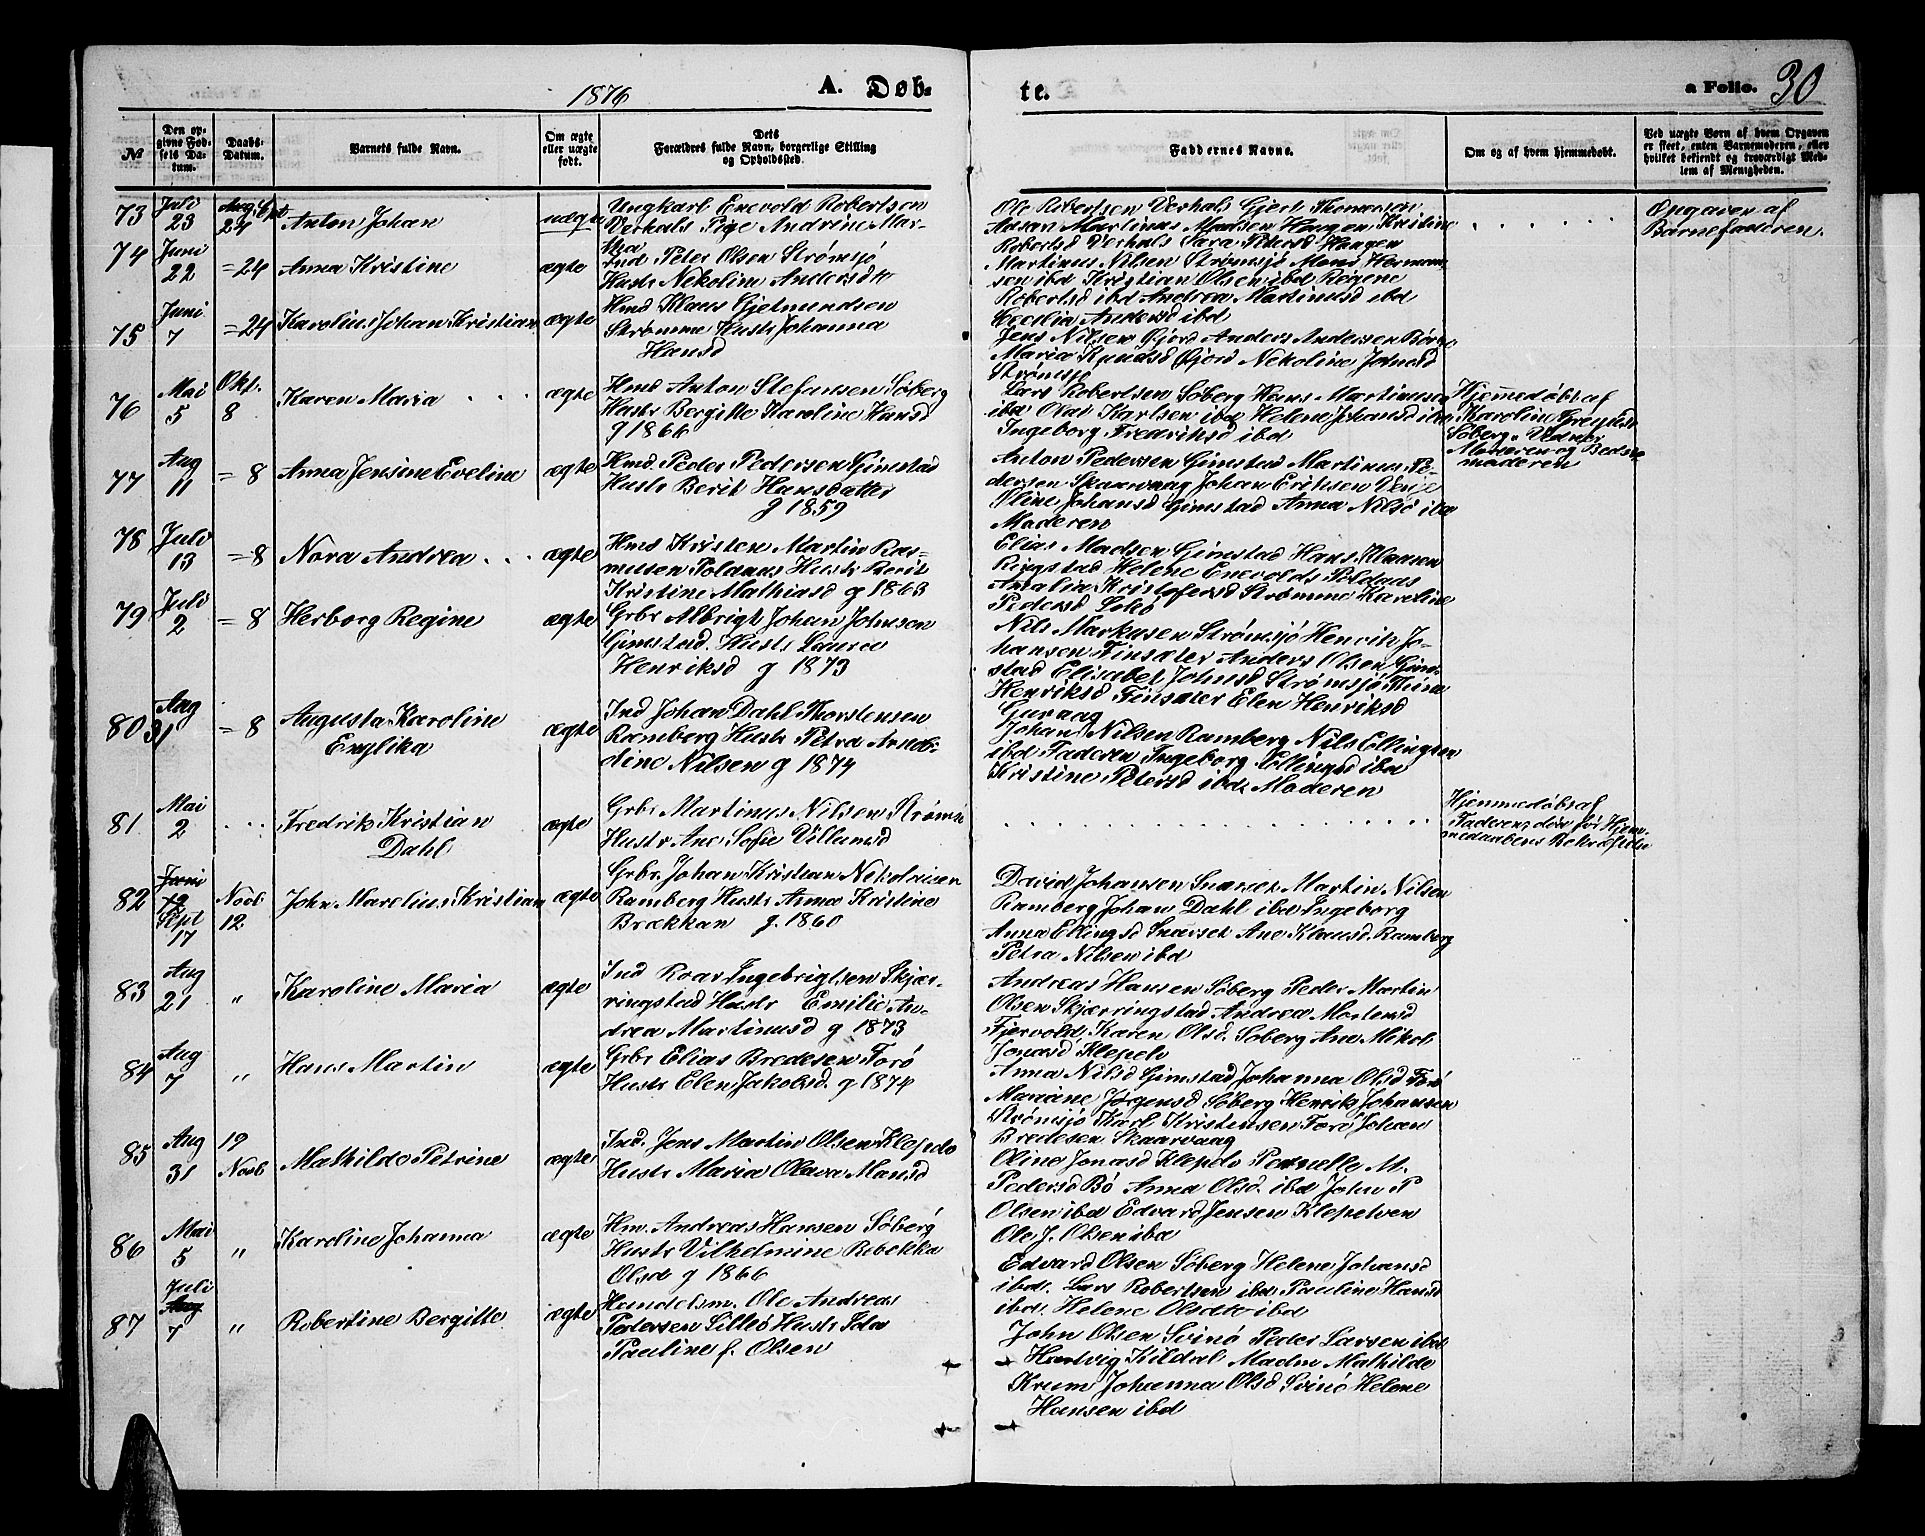 1876
A. Døb-
te.
a Folio. 30
№
Den op-
givne Fød-
sels Da-
tum.
Daabs-
Datum.
Barnets fulde Navn.
Om ægte
eller uægte
født.
Dets
Forældres fulde Navn, borgerlige Stilling
og Opholdssted.
Faddernes Navne.
Om og af hvem hjemmedøbt.
Ved uægte Born af hvem Opgaven
er skeet, enten Barnemoderen, eller
hvilket bekjendt og troværdigt Med-
lem af Menigheden.
73
Juli
23
24
Anton Johan
uægte
Ungkarl Enevold Robertsen
Verhals Pige Andrine Mar-
tha
Ole Robertsen Verhals Gjert Thomesen
Aasan Martinus Madsen Haugen Kristine
Robertsd Verhals Sara Pedersd Haugen
Opgaven af
Barnefaderen.
74
Juni
22
= 24
Anna Kristine
ægte
Ind Peter Olsen Strømsjø
Hustr Nekoline Andersdtr
Martinus Nilsen Strømsjø Mons Herman-
sen ibd Kristian Olsen ibd Regine
Robertsd ibd Andrea Martinusd ibd
Cecilia Andersd ibd
75
Juni
7
= 24
Karolius Johan Kristian
ægte
Hmd Klaus Gjetmundsen
Strømme Hustr Johanna
Hansd
Jens Nilsen Gjord Anders Andersen Börge
Maria Knudsd Gjord Nekoline Johnsd
Strömsjø
76
Mai
5
Okt.
8
Karen Maria
ægte
Hmd Anton Stefansen Søberg
Hustr Bergitte Karoline Hansd
g 1866
Lars Robertsen Søberg Hans Martinusen
ibd Olai Karlsen ibd Helene Johansd ibd
Ingeborg Fredriksd ibd
Hjemmedøbt af
Karolin
Søberg. Vidner
Moderen og Bedste-
moderen
77
Aug
11
= 8
Anna Jensine Eveline
ægte
Hmd. Peder Pedersen Gimstad
Hustr Berit Hansdatter
g 1859
Anton Pedersen Gimstad Martinus Pe-
dersen Skaarvaag Johan Eriksen Verje
Oline Johansd Gimstad Anna Nilsd ibd
Moderen
78
Juli
13
= 8
Nora Andrea
ægte
Hmd Kristen Martin Ras-
mussen Poldaas Hustr Berit
Kristine Mathiasd g 1863
Elias Madsen Gimstad Hans Klausen
Ringstad Helene Enevolds Poldaas
Amalia Kristofersd Strømme Karoline
Pedersd Sokø
79
Juli
2
= 8
Herborg Regine
ægte
Grbr Albrigt Johan Johnsen
Gimstad. Hustr Laura
Henriksd g 1873
Nils Markusen Strømsjø Henrik Jo-
hansen Finsæter Anders Olsen Gim-
stad Elisabet Johnsd Strømsjø Thina
Henriksd Finsæter Elen Henriksd
Guvaag
80
Aug
31
= 8
Augusta Karoline
Englika
ægte
Ind Johan Dahl Thorstensen
Ramberg Hustr Petra Arnol-
dine Nilsen g 1874
Johan Nilsen Ramberg Nils Ellingsen
ibd Faderen Ingeborg Ellingsd ibd
Kristine Petersd ibd Moderen
81
Mai
2
Fredrik Kristian
Dahl
ægte
Grbr Martinus Nilsen Strømsø
Hustr Ane Sofie Villumsd
Hjemmedøbt af
Faderen, død før Hjem-
medaabens Bekræftelse
82
Juni
Sept
17
Novb.
12
John Marelius Kristian
ægte
Grbr. Johan Kristian Nikolaisen
Ramberg Hustr Anna Kristine
Brækkan g. 1860
David Johansen Snarset Martin Nilsen
Ramberg Johan Dahl ibd Ingeborg
Anna Ellingsd Snarset Ane Klausd. Ramberg
Petra Nilsen ibd
83
Aug
21
"
Karoline Maria
ægte
Ind Roar Ingebrigtsen Skjær-
ringstad Hustr Emilie An-
drea Martinusd g 1873
Andreas Hansen Søberg Peder Martin
Olsen Skjærringstad Andrea Mortensd
Fjervold Karen Olsd. Søberg Ane Mikol
Jonasd Klepelv
84
Aug
7
"
Hans Martin
ægte
Grbr Elias Bredesen Forø
Hustr Elen Jakobsd. g 1874
Anna Nilsd Gimstad Johanna Olsd Forø
Mariane Jørgensd Søberg Henrik Johansen
Strömsjö Karl Kristensen Forø Johan
Bredesen Skaarvaag
85
Aug
31
19
Novb
Mathilde Petrine
ægte
Ind. Jens Martin Olsen Klepelv
Hustr Maria Olava Mansd
Oline Jonasd Klepelv Pernelle M.
Pedersd Bö Anna Olsd. ibd John P
Olsen ibd Edvard Jensen Klepelven
Ole J. Olsen ibd
86
Mai
5
"
Karoline Johanna
ægte
Hm. Andreas Hansen Søberg
Hustr Vilhelmine Rebekka
Olsd g 1866
Edvard Olsen Søberg Helene Johansd
ibd. Lars Robertsen ibd Pauline Hansd
ibd. Helene Olsdtr ibd
87
Juli
Aug
7
"
Robertine Bergitte
ægte
Handelsm. Ole Andreas
Pedersen Lillø Hustr Ida
Pauline f. Olsen
John Olsen Svinø Peder Larsen ibd
Hartvig Kildal Madm Mathilde
Krum Johanna Olsd Svinø Helene
Hansen ibd